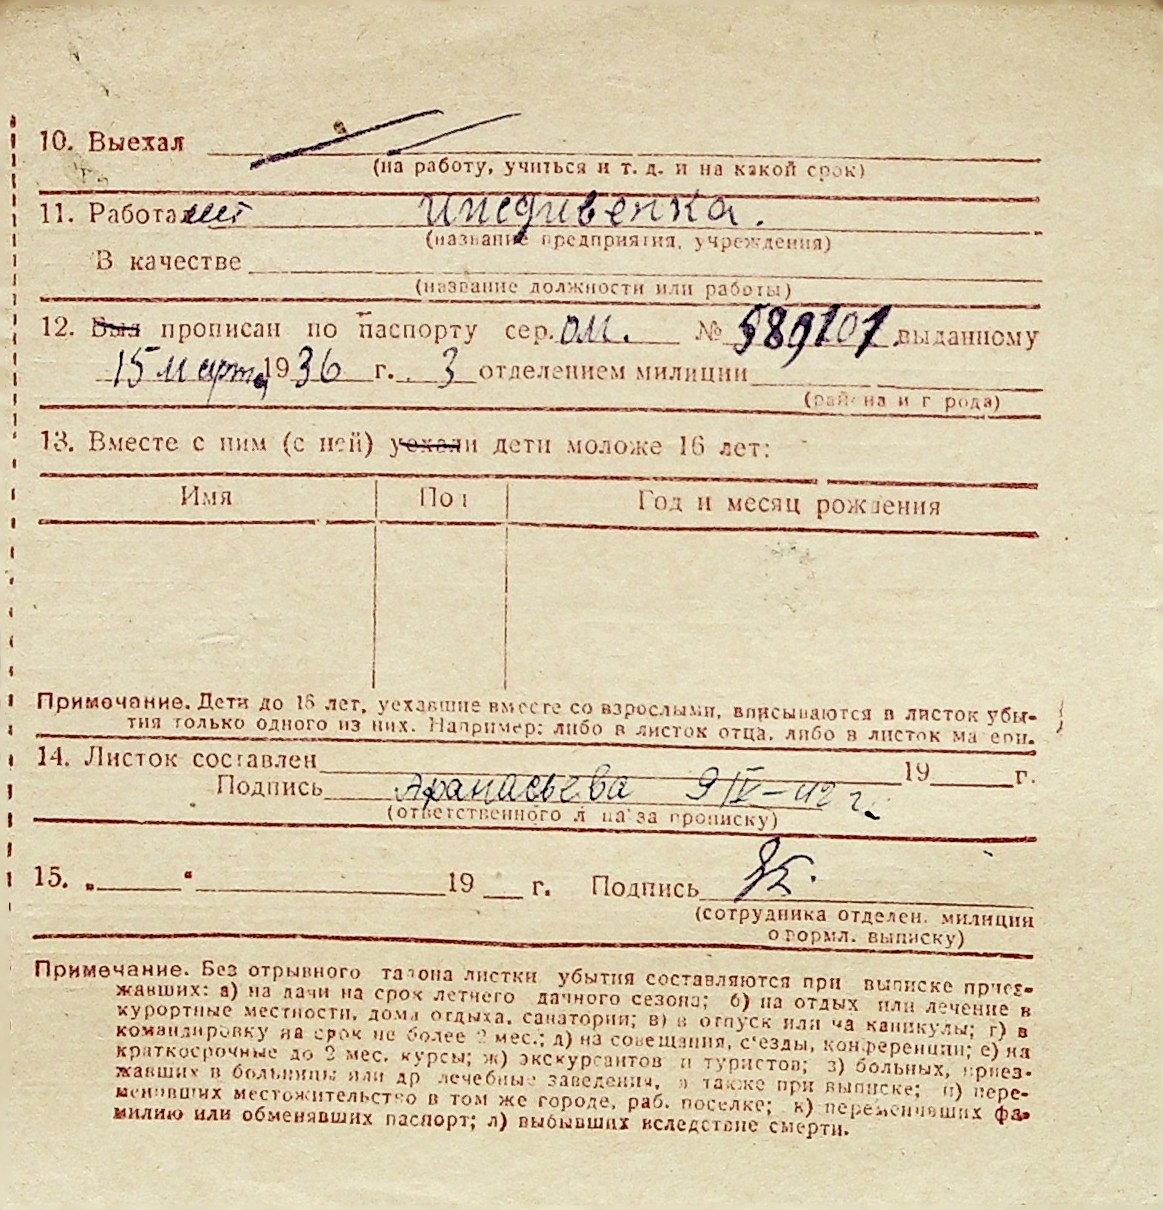 10. Выехал
(на работу, учиться и т. д. и на какой срок)
11. Работает иждивенка.
(название предприятия, учреждения)
В качестве
(название должности или работы)
12. Был прописан по паспорту сер. ОМ. № 589101 выданному
15 марта 1936 г. 3 отделением милиции
(района и города)
13. Вместе с ним (с ней) уехали дети моложе 16 лет:
Имя Пол Год и месяц рождения
Примечание. Дети до 16 лет, уехавшие вместе со взрослыми, вписываются в листок убы-
тия только одного из них. Например: либо в листок отца, либо в листок матери.
14. Листок составлен 19 г.
Подпись Афанасьева 9/IV-42 г.
(ответственного лица за прописку)
15. „ “ 19 г. Подпись
(сотрудника отделен. милиции
оформл. выписку)
Примечание. Без отрывного талона листки убытия составляются при выписке приез-
жавших: а) на дачи на срок летнего дачного сезона; б) на отдых или лечение в
курортные местности, дома отдыха, санатории; в) в отпуск или на каникулы; г) в
командировку на срок не более 2 мес.; д) на совещания, с'езды, конференции; е) на
краткосрочные до 2 мес. курсы; ж) экскурсантов и туристов; з) больных, приез-
жавших в больницы или др лечебные заведения, а также при выписке; и) пере-
менивших местожительство в том же городе, раб. поселке; к) переменивших фа-
милию или обменявших паспорт; л) выбывших вследствие смерти.